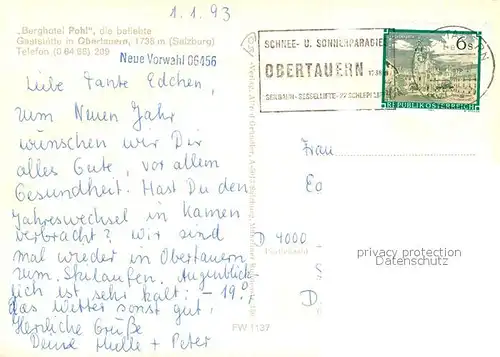 1.1.93
„Berghotel Pohl", die beliebte
Gaststätte in Obertauern, 1735 m (Salzburg)
Telefon (0 64 56) 209
Neue Vorwahl 06456
Liebe Tante Edchen,
zum Neuen Jahr
wünschen wir Dir
alles Gute, vor allem
Gesundheit. Hast Du den
Jahreswechsel in Kamen
verbracht? Wir sind
mal wieder in Obertauern
zum Skilaufen. Augenblick-
lich ist sehr kalt: -19°,
das Wetter sonst gut.
Herzliche Grüße
Deine + Peter
SCHNEE- U. SONNENPARADIES
OBERTAUERN
6s
REPUBLIK ÖSTERREICH
Frau
D 4000
D
privacy protection
Datenschutz
FW 1137